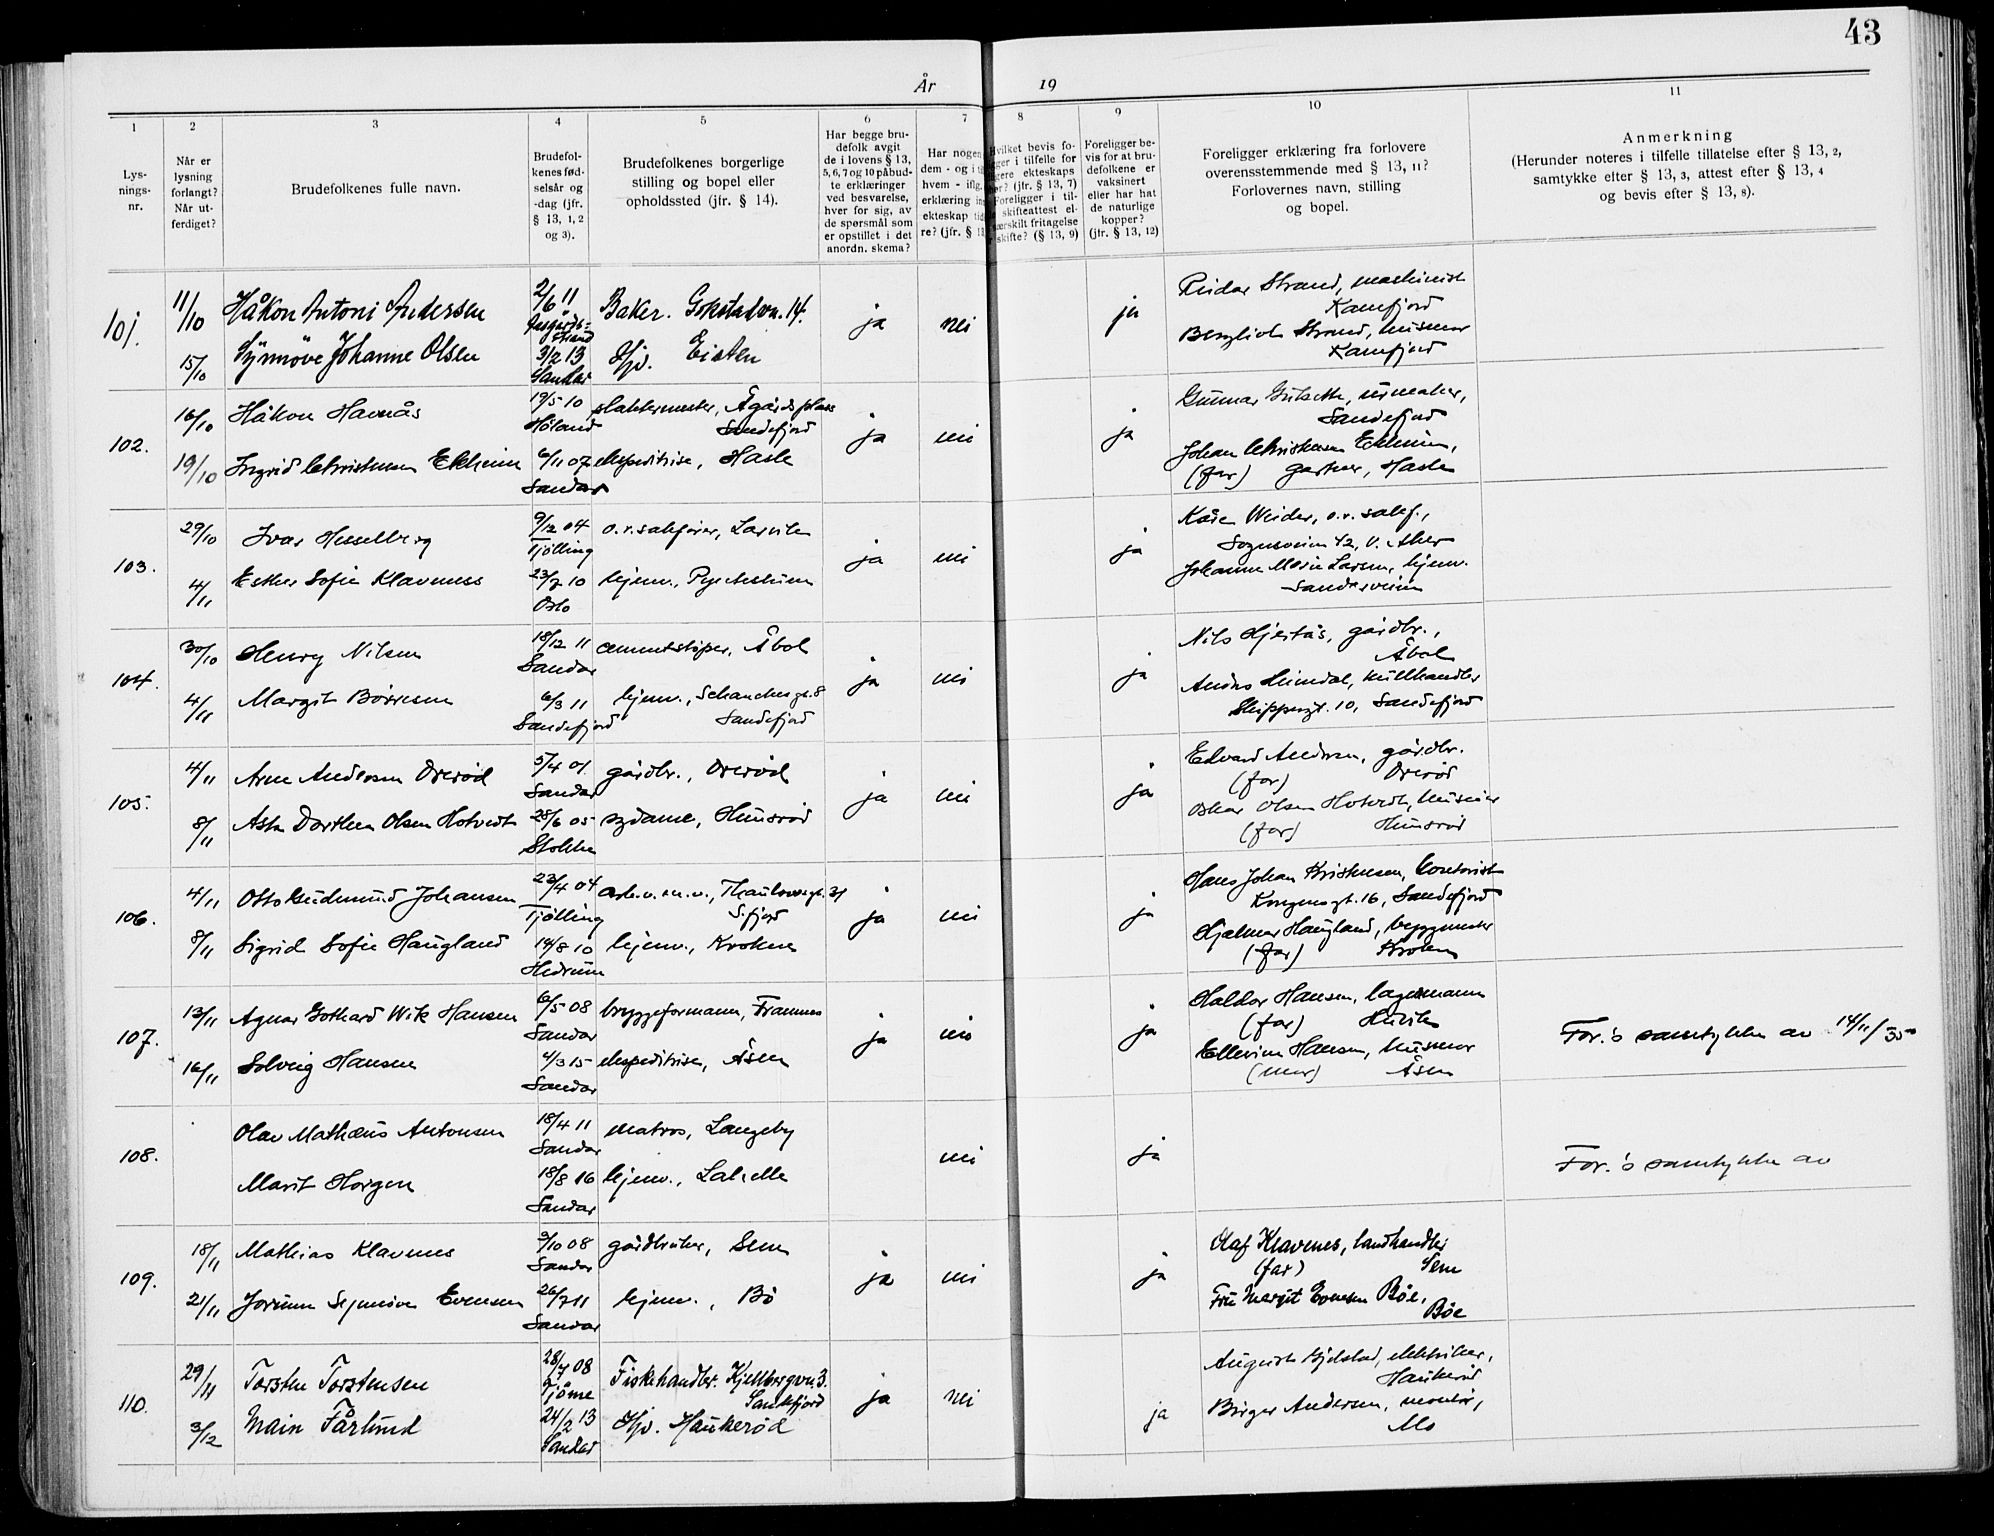 43
År 19
1 2 3 4 5 6 7 8 9 10 11
Lys-
nings-
nr.
Når er
lysning
forlangt?
Når ut-
ferdiget?
Brudefolkenes fulle navn.
Brudefol-
kenes fød-
selsår og
-dag (jfr.
§ 13, 1, 2
og 3).
Brudefolkenes borgerlige
stilling og bopel eller
opholdssted (jfr. § 14).
Har begge bru-
defolk avgit
de i lovens § 13,
5, 6, 7 og 10 påbud-
te erklæringer
ved besvarelse,
hver for sig, av
de spørsmål som
er opstillet i det
anordn. skema?
Har nogen
dem - og i
hvem - iflg.
erklæring
ekteskap
re? (jfr. §
Hvilket bevis fo-
i tilfelle for
ekteskaps
(jfr. § 13, 7)
Foreligger i til-
skifteattest el-
særskilt fritagelse
skifte? (§ 13, 9)
Foreligger be-
vis for at bru-
defolkene er
vaksinert
eller har hat
de naturlige
kopper?
(jfr. § 13, 12)
Foreligger erklæring fra forlovere
overensstemmende med § 13, 11?
Forlovernes navn, stilling
og bopel.
Anmerkning
(Herunder noteres i tilfelle tillatelse efter § 13, 2,
samtykke efter § 13, 3, attest efter § 13, 4
og bevis efter § 13, 8).
101. 11/10 Håkon Antoni Andersen 2/6 11 Baker. Gokstadvn. 14. ja nei ja Reidar Strand, maskinist
Kamfjord
15/10 Synnøve Johanne Olsen 3/2 13 Hjv. Eisten Bergliot Strand, husmor
Sandar Kamfjord
102. 16/10 Håkon Havnås 19/5 10 slaktermester, Ågårds plass ja nei ja Gunnar, urmaker,
Høland Sandefjord Sandefjord
19/10 Ingrid Christensen Ekheim 6/11 07 ekspeditrise, Hasle Johan Christensen Ekheim,
Sandar (far) gartner, Hasle
103. 29/10 Ivar Hesselberg 9/12 04 o.r.sakfører, Larvik ja nei ja Kåre Weider, o.r. sakf.,
Tjølling Sognsveien 42, V. Aker
4/11 Esther Sofie Klaveness 23/7 10 hjemv., Johanne Marie Larsen, hjemv.
Oslo Sandarveien
104. 30/10 Henry Nilsen 18/12 11 cementstøper, Åbol ja nei ja Nils Hjertås, gårdbr.,
Sandar Åbol
4/11 Margit Børresen 6/3 11 hjemv., Schanchesgt. 8 Heimdal, kullhandler
Sandefjord Sandefjord Skippergt. 10, Sandefjord
105. 4/11 Arne Andersen Orerød 5/4 01 gårdbr., Orerød ja nei ja Edvard Andersen, gårdbr.
Sandar (far) Orerød
8/11 Asta Dorthea Olsen Hotvedt 28/6 05 sydame, Unnerød Oskar Olsen Hotvedt,
Stokke (far)
106. 4/11 Otto Gudmund Johansen 23/4 04 arb. v. m. v., Thaulowsgt. 31 ja nei ja Hans Johan Kristensen, kontorist
Tjølling S.fjord Kongensgt. 16, Sandefjord
8/11 Sigrid Sofie Haugland 14/8 10 hjemv., Kroken Hjalmar Haugland, byggmester
Hedrum (far) Krokem
107. 13/11 Agnar Gothard Wik Hansen 6/5 08 bryggeformann, Framnes ja nei ja Haldor Hansen, lagermann
Sandar (far) Huvik
16/11 Solveig Hansen 4/3 15 ekspeditrise, Åsen Ellevine Hansen, husmor
Sandar (mor) Åsen
For.'s samtykke av 14/11/35
108. Olav Mathæus Antonsen 18/4 11 matros, Langeby nei ja
Sandar
Marit Horgen 18/8 16 hjemv.,
Sandar
For.'s samtykke av
109. 18/11 Mathias Klavenes 9/10 08 gårdbruker, Sem ja nei ja Olaf Klavenes, landhandler
Sandar (far) Sem
21/11 Jorunn Synnøve Evensen 26/7 11 hjemv., Bø Fru Margit Evensen Bøe,
Sandar Bøe
110. 29/11 Torsten Torstensen 28/7 08 Fiskehandler. Kjellbergvn. 3. ja nei ja August, elektriker,
Tjøme Sandefjord Haukerød
3/12 Main Fårlund 24/2 13 Hjv. Haukerød Birger Andersen, montør,
Sandar Mo